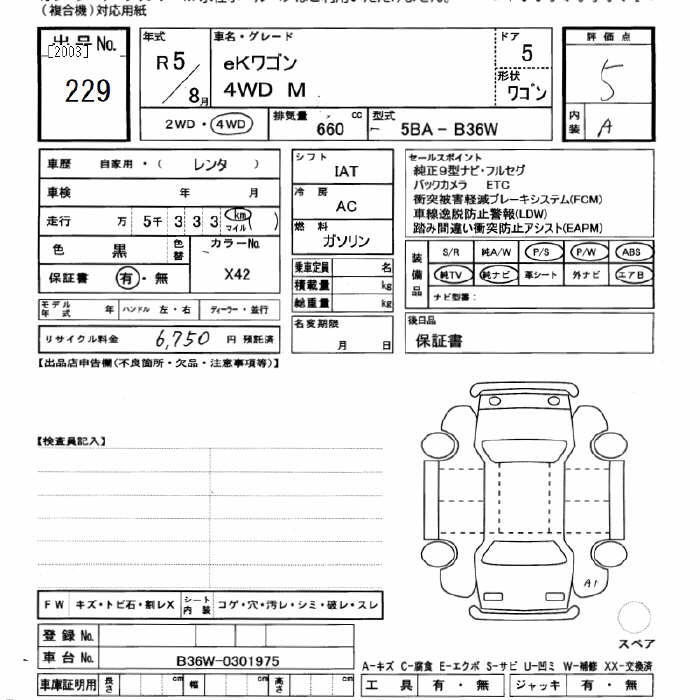 (複合機)対応用紙
出品No.
[2003]
229
年式
R5/8月
車名・グレード
eKワゴン
4WD M
ドア
5
形状
ワゴン
評価点
5
内装
A
2WD・4WD
排気量
660 cc
型式
5BA-B36W
車歴 自家用・( レンタ )
車検 年 月
走行 万 5千 3 3 3 km マイル ( )
色 黒 色替
カラーNo.
X42
保証書 有・無
モデル年式 年 ハンドル 左・右 ディーラー・並行
リサイクル料金 6,750 円 預託済
シフト
IAT
冷房
AC
燃料
ガソリン
乗車定員 名
積載量 kg
総重量 kg
名変期限
月 日
セールスポイント
純正9型ナビ・フルセグ
バックカメラ ETC
衝突被害軽減ブレーキシステム(FCM)
車線逸脱防止警報(LDW)
踏み間違い衝突防止アシスト(EAPM)
装備品
S/R 純A/W P/S P/W ABS
純TV 純ナビ 革シート 外ナビ エアB
ナビ型番:
後日品
保証書
【出品店申告欄(不良箇所・欠品・注意事項等)】
【検査員記入】
A1
スペア
FW キズ・トビ石・割レX シート内装 コゲ・穴・汚レ・シミ・破レ・スレ
登録No.
車台No. B36W-0301975
車庫証明用 長さ cm 幅 cm 高さ cm
A-キズ C-腐食 E-エクボ S-サビ U-凹ミ W-補修 XX-交換済
工具 有・無 ジャッキ 有・無